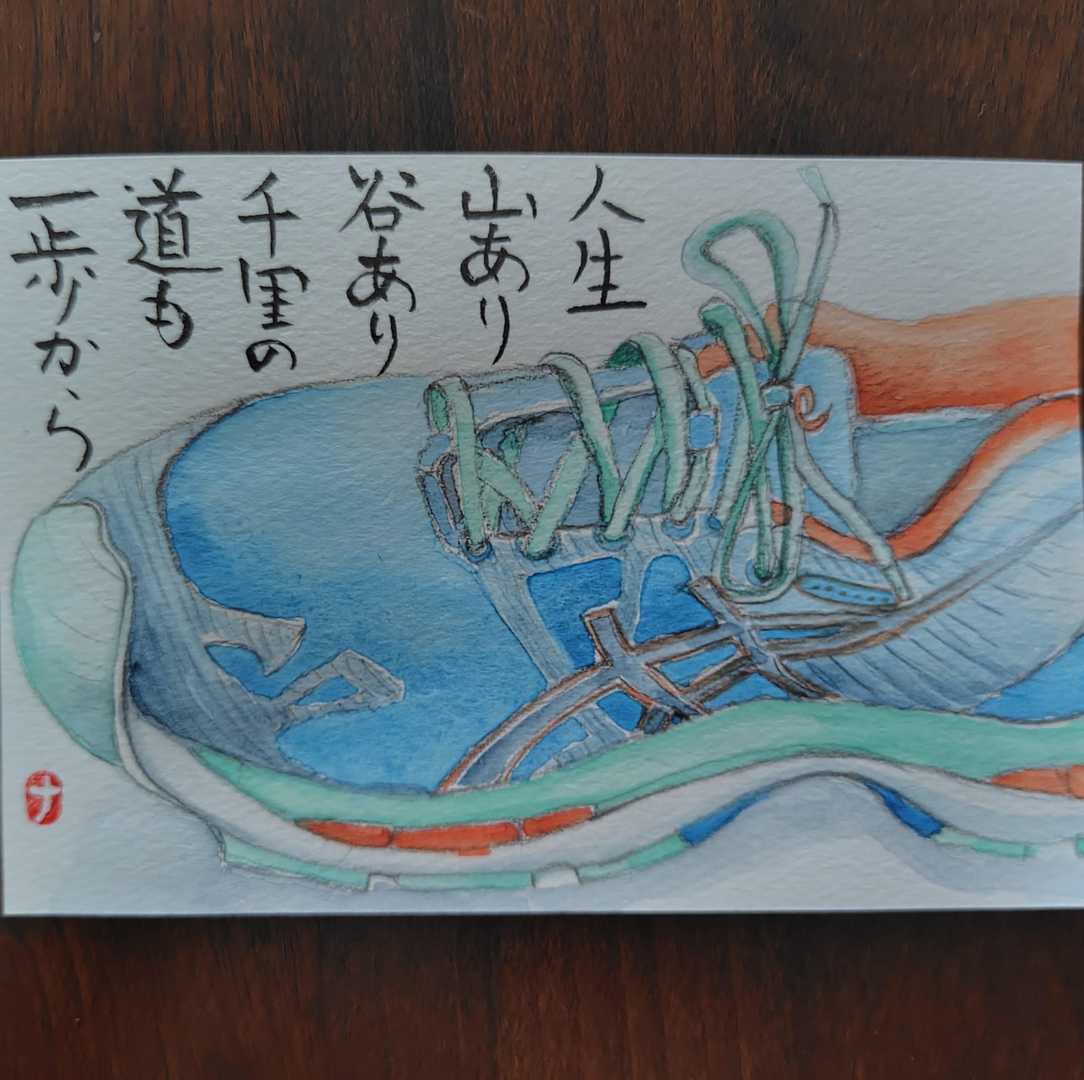 人生
山あり
谷あり
千里の
道も
一歩から
ナ